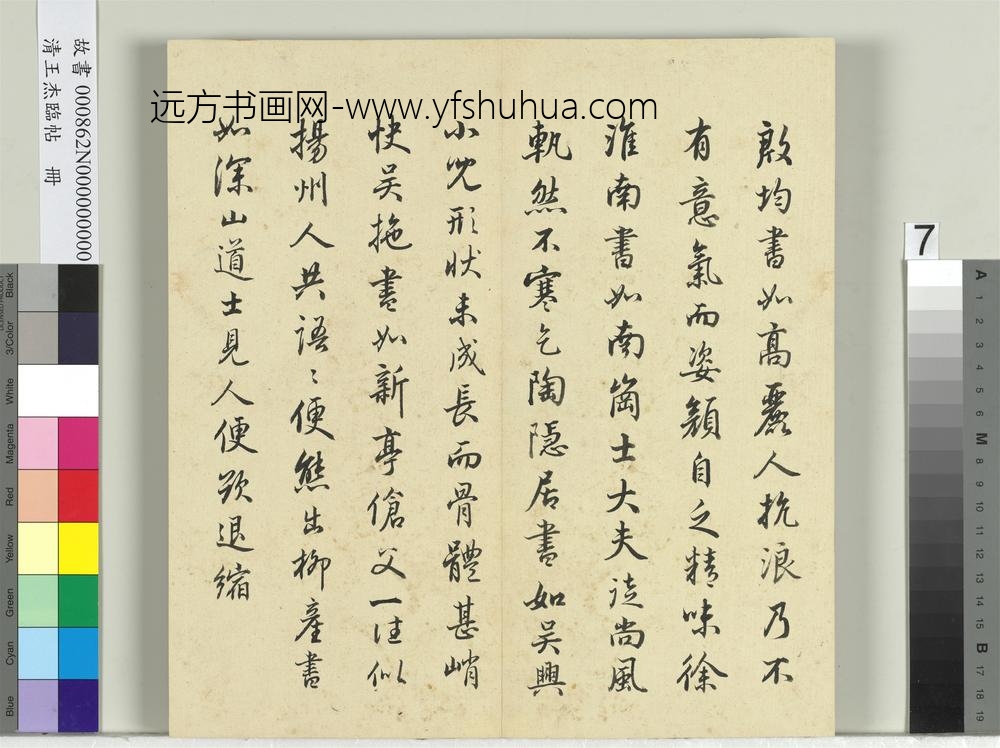 殷均書如高麗人抗浪乃不
有意氣而姿顏自乏精味徐
淮南書如南崗士大夫徒尚風
軌然不寒乞陶隱居書如吳興
小兒形狀未成長而骨體甚峭
快吳拖書如新亭傖父一往似
揚州人共語〻便態出柳產書
如深山道士見人便欲退縮
远方书画网-www.yfshuhua.com
故書 000862N000000000
清王杰臨帖 冊
7
Black
3/Color
White
Magenta
Red
Yellow
Green
Cyan
Blue
A
1
2
3
4
5
6
M
8
9
10
11
12
13
14
15
B
17
18
19